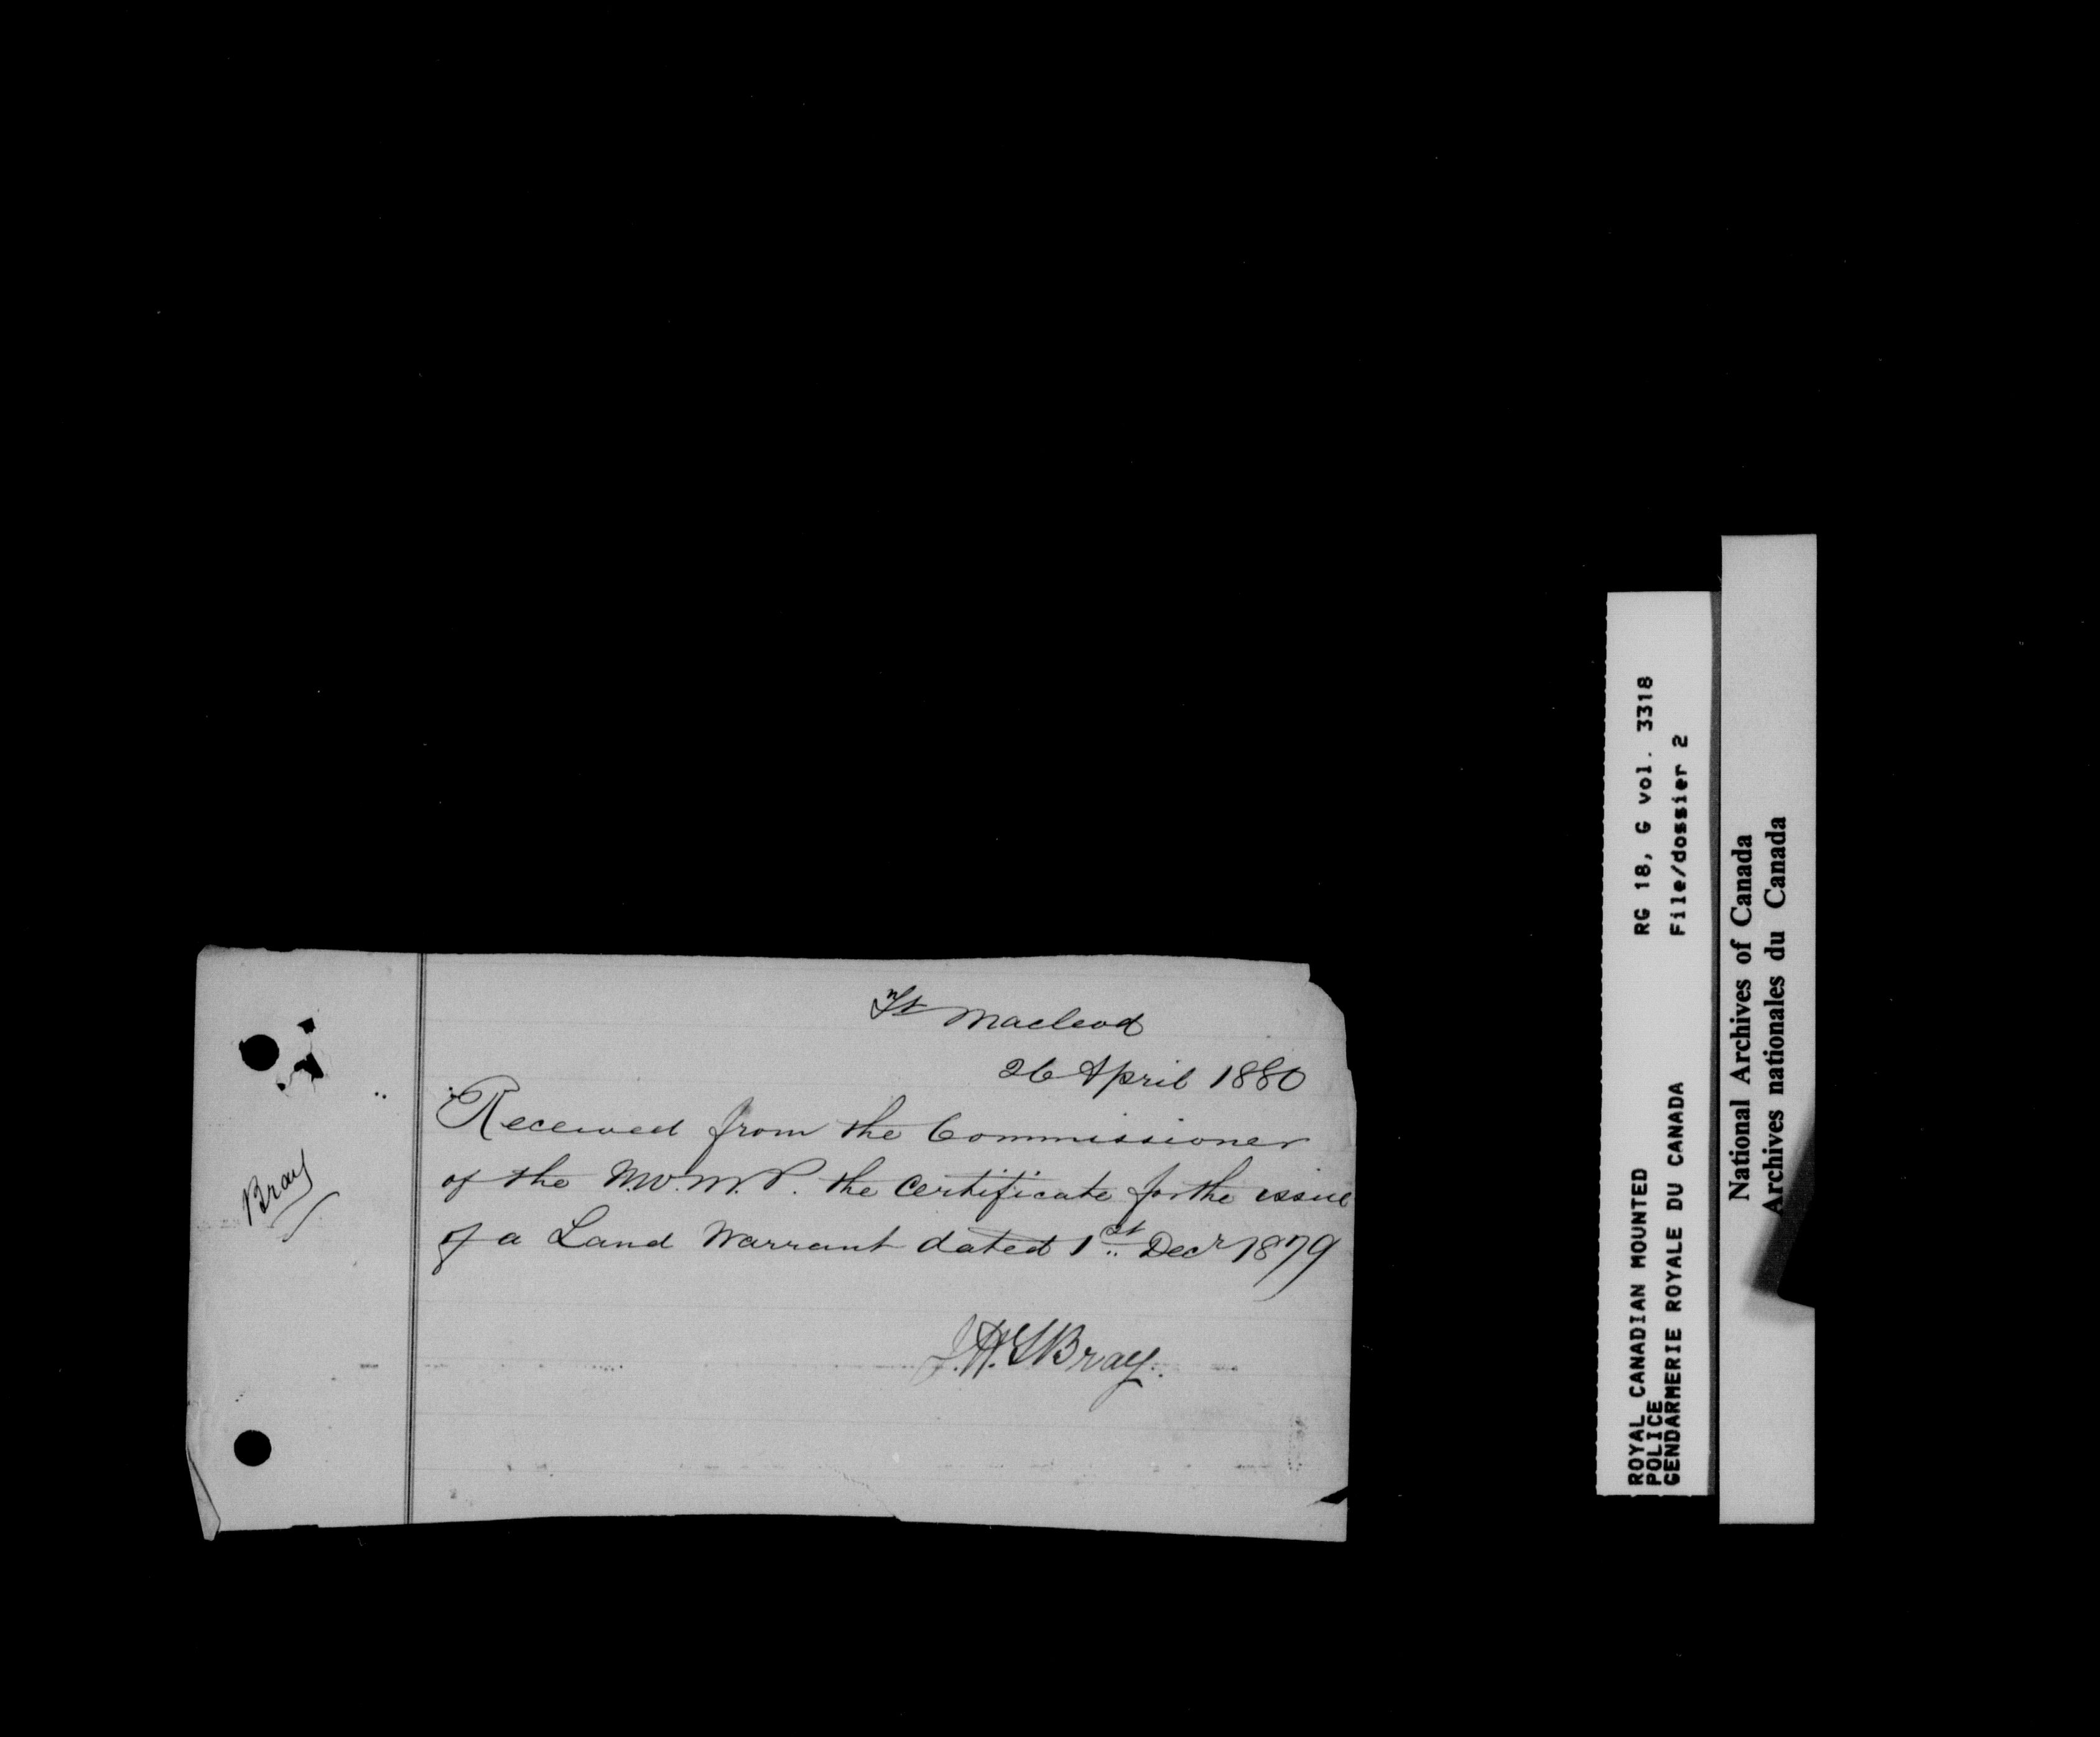 Ft Macleod
26 April 1880
Received from the Commissioner
of the N.W.M.P. the Certificate for the issue
of a Land Warrant dated 1st Decr 1879
J.H.G. Bray.
Bray
ROYAL CANADIAN MOUNTED
POLICE
GENDARMERIE ROYALE DU CANADA
RG 18, G vol. 3318
File/dossier 2
National Archives of Canada
Archives nationales du Canada